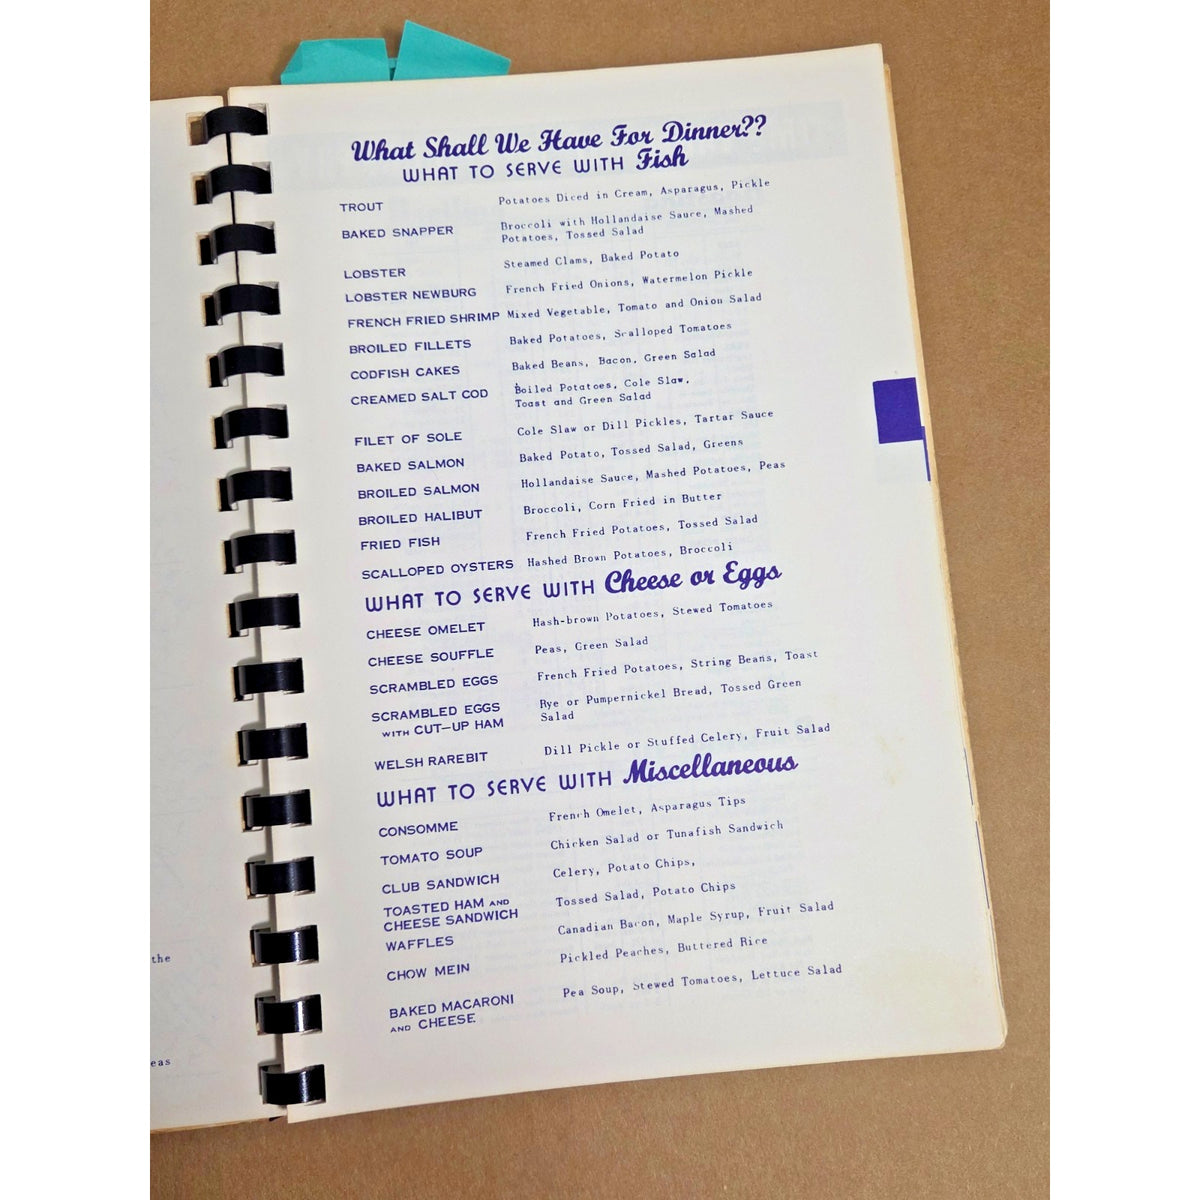 What Shall We Have For Dinner??
WHAT TO SERVE WITH Fish
TROUT Potatoes Diced in Cream, Asparagus, Pickle
BAKED SNAPPER Broccoli with Hollandaise Sauce, Mashed
Potatoes, Tossed Salad
LOBSTER Steamed Clams, Baked Potato
LOBSTER NEWBURG French Fried Onions, Watermelon Pickle
FRENCH FRIED SHRIMP Mixed Vegetable, Tomato and Onion Salad
BROILED FILLETS Baked Potatoes, Scalloped Tomatoes
CODFISH CAKES Baked Beans, Bacon, Green Salad
CREAMED SALT COD Boiled Potatoes, Cole Slaw,
Toast and Green Salad
FILET OF SOLE Cole Slaw or Dill Pickles, Tartar Sauce
BAKED SALMON Baked Potato, Tossed Salad, Greens
BROILED SALMON Hollandaise Sauce, Mashed Potatoes, Peas
BROILED HALIBUT Broccoli, Corn Fried in Butter
FRIED FISH French Fried Potatoes, Tossed Salad
SCALLOPED OYSTERS Hashed Brown Potatoes, Broccoli
WHAT TO SERVE WITH Cheese or Eggs
CHEESE OMELET Hash-brown Potatoes, Stewed Tomatoes
CHEESE SOUFFLE Peas, Green Salad
SCRAMBLED EGGS French Fried Potatoes, String Beans, Toast
SCRAMBLED EGGS Rye or Pumpernickel Bread, Tossed Green
WITH CUT-UP HAM Salad
WELSH RAREBIT Dill Pickle or Stuffed Celery, Fruit Salad
WHAT TO SERVE WITH Miscellaneous
CONSOMME French Omelet, Asparagus Tips
TOMATO SOUP Chicken Salad or Tunafish Sandwich
CLUB SANDWICH Celery, Potato Chips,
TOASTED HAM AND Tossed Salad, Potato Chips
CHEESE SANDWICH
WAFFLES Canadian Bacon, Maple Syrup, Fruit Salad
CHOW MEIN Pickled Peaches, Buttered Rice
BAKED MACARONI Pea Soup, Stewed Tomatoes, Lettuce Salad
AND CHEESE
the
eas